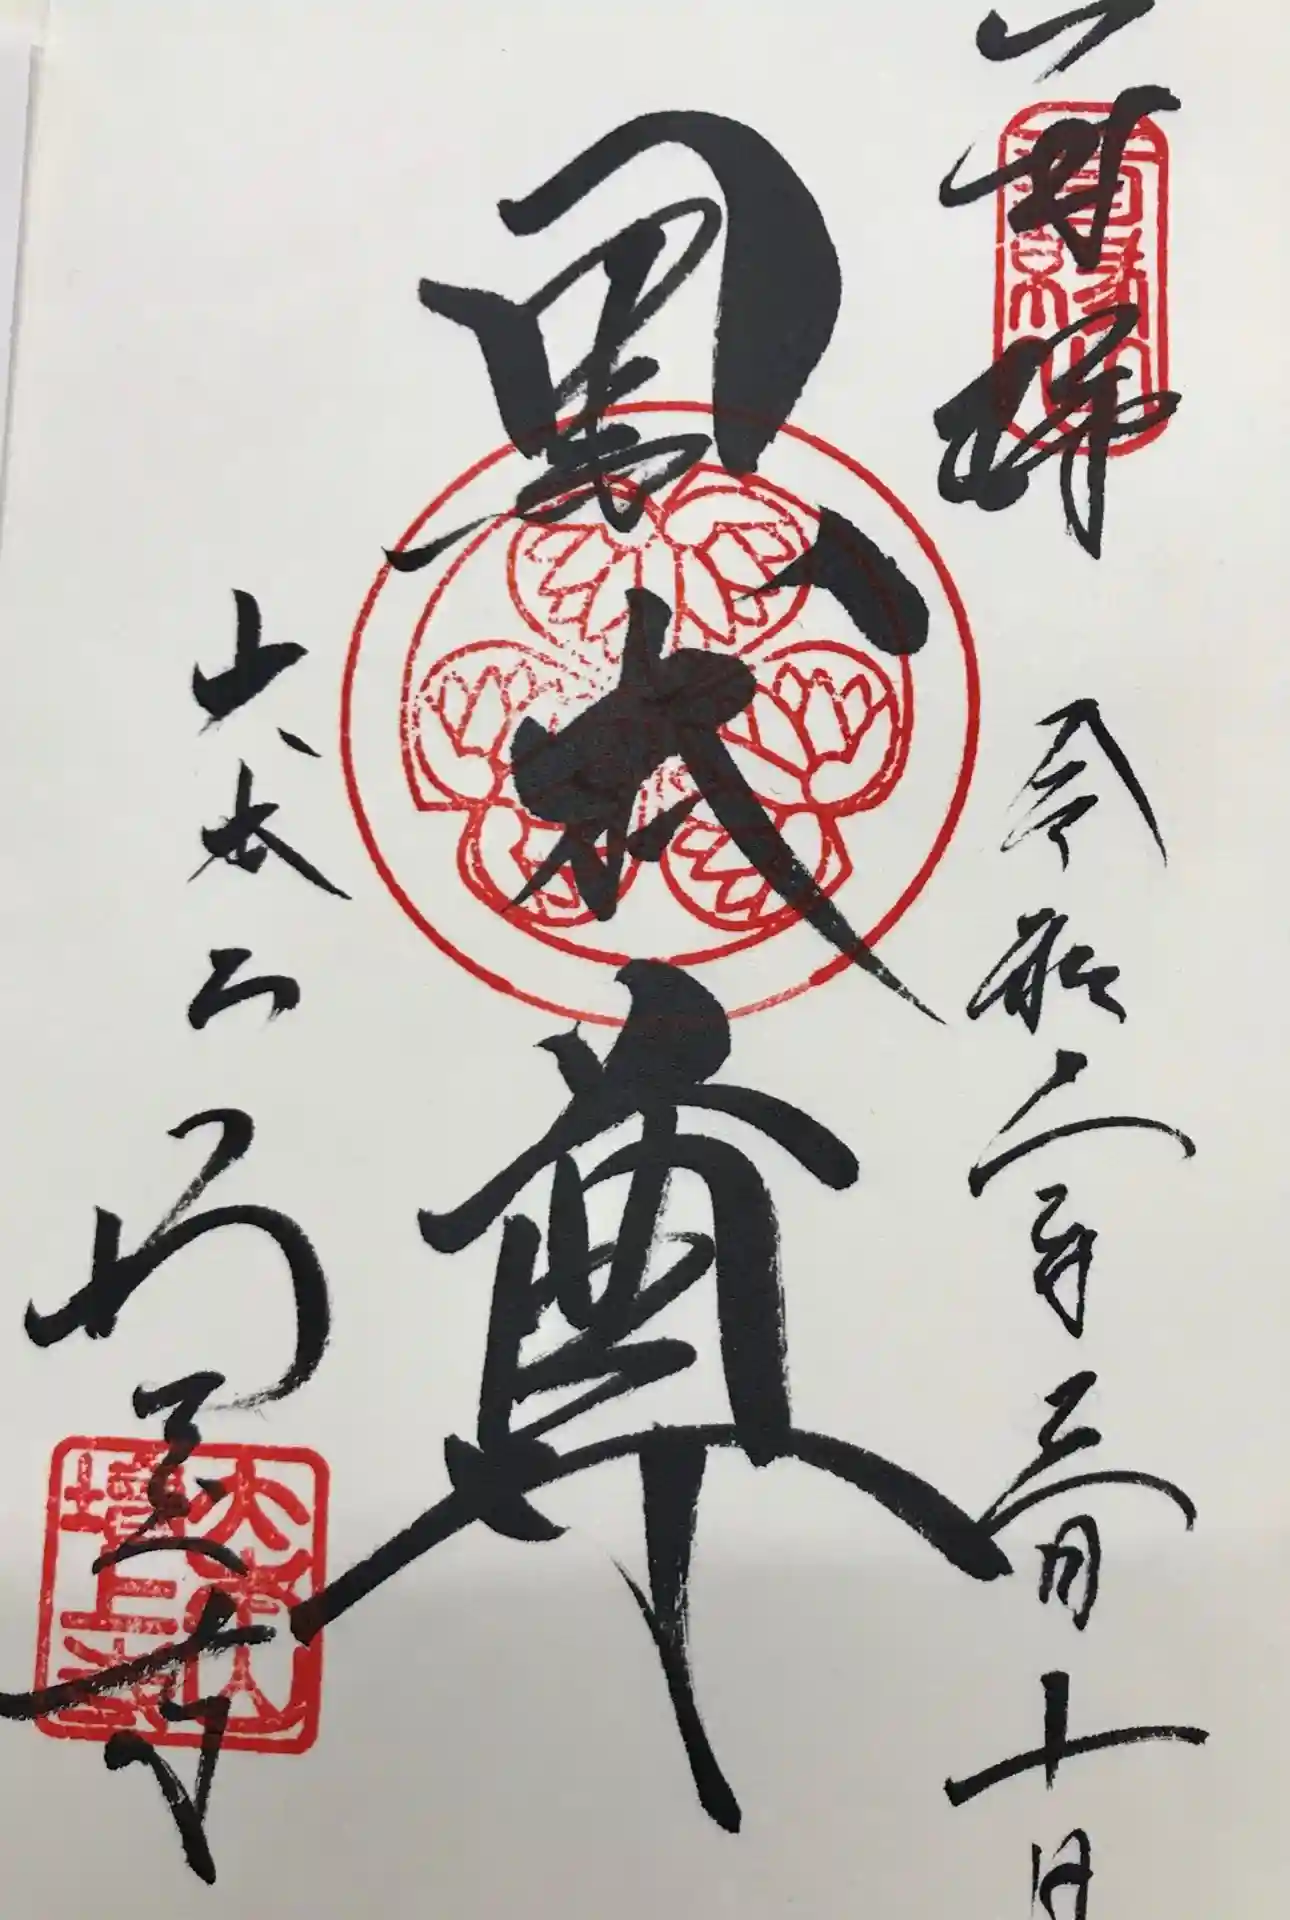 奉拝　令和二年三月十日
黒本尊
大本山
増上寺
大本山
増上寺